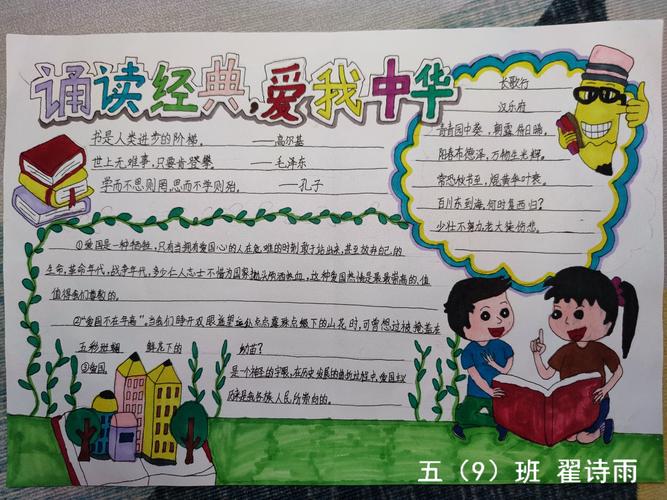 诵读经典,爱我中华
书是人类进步的阶梯。 ——高尔基
世上无难事,只要肯登攀。 ——毛泽东
学而不思则罔,思而不学则殆。 ——孔子
长歌行
汉乐府
青青园中葵,朝露待日晞。
阳春布德泽,万物生光辉。
常恐秋节至,焜黄华叶衰。
百川东到海,何时复西归?
少壮不努力,老大徒伤悲。
①爱国是一种牺牲,只有当拥有爱国心的人在危难的时刻敢于站出来,甚至放弃自己的
生命,革命年代,战争年代,多少仁人志士不惜为国家抛头颅洒热血,这种爱国热情是最崇高的,值
值得我们尊敬的。
②"爱国不在年高",当我们睁开双眼遥望远处点点露珠点缀下的山花时,可曾想过被掩盖在
五彩斑斓 鲜花下的 幼苗?
③爱国, 是一个神圣的字眼,在历史发展的曲折过程中,爱国
历来是我各族人民所崇尚的。
五(9)班 翟诗雨